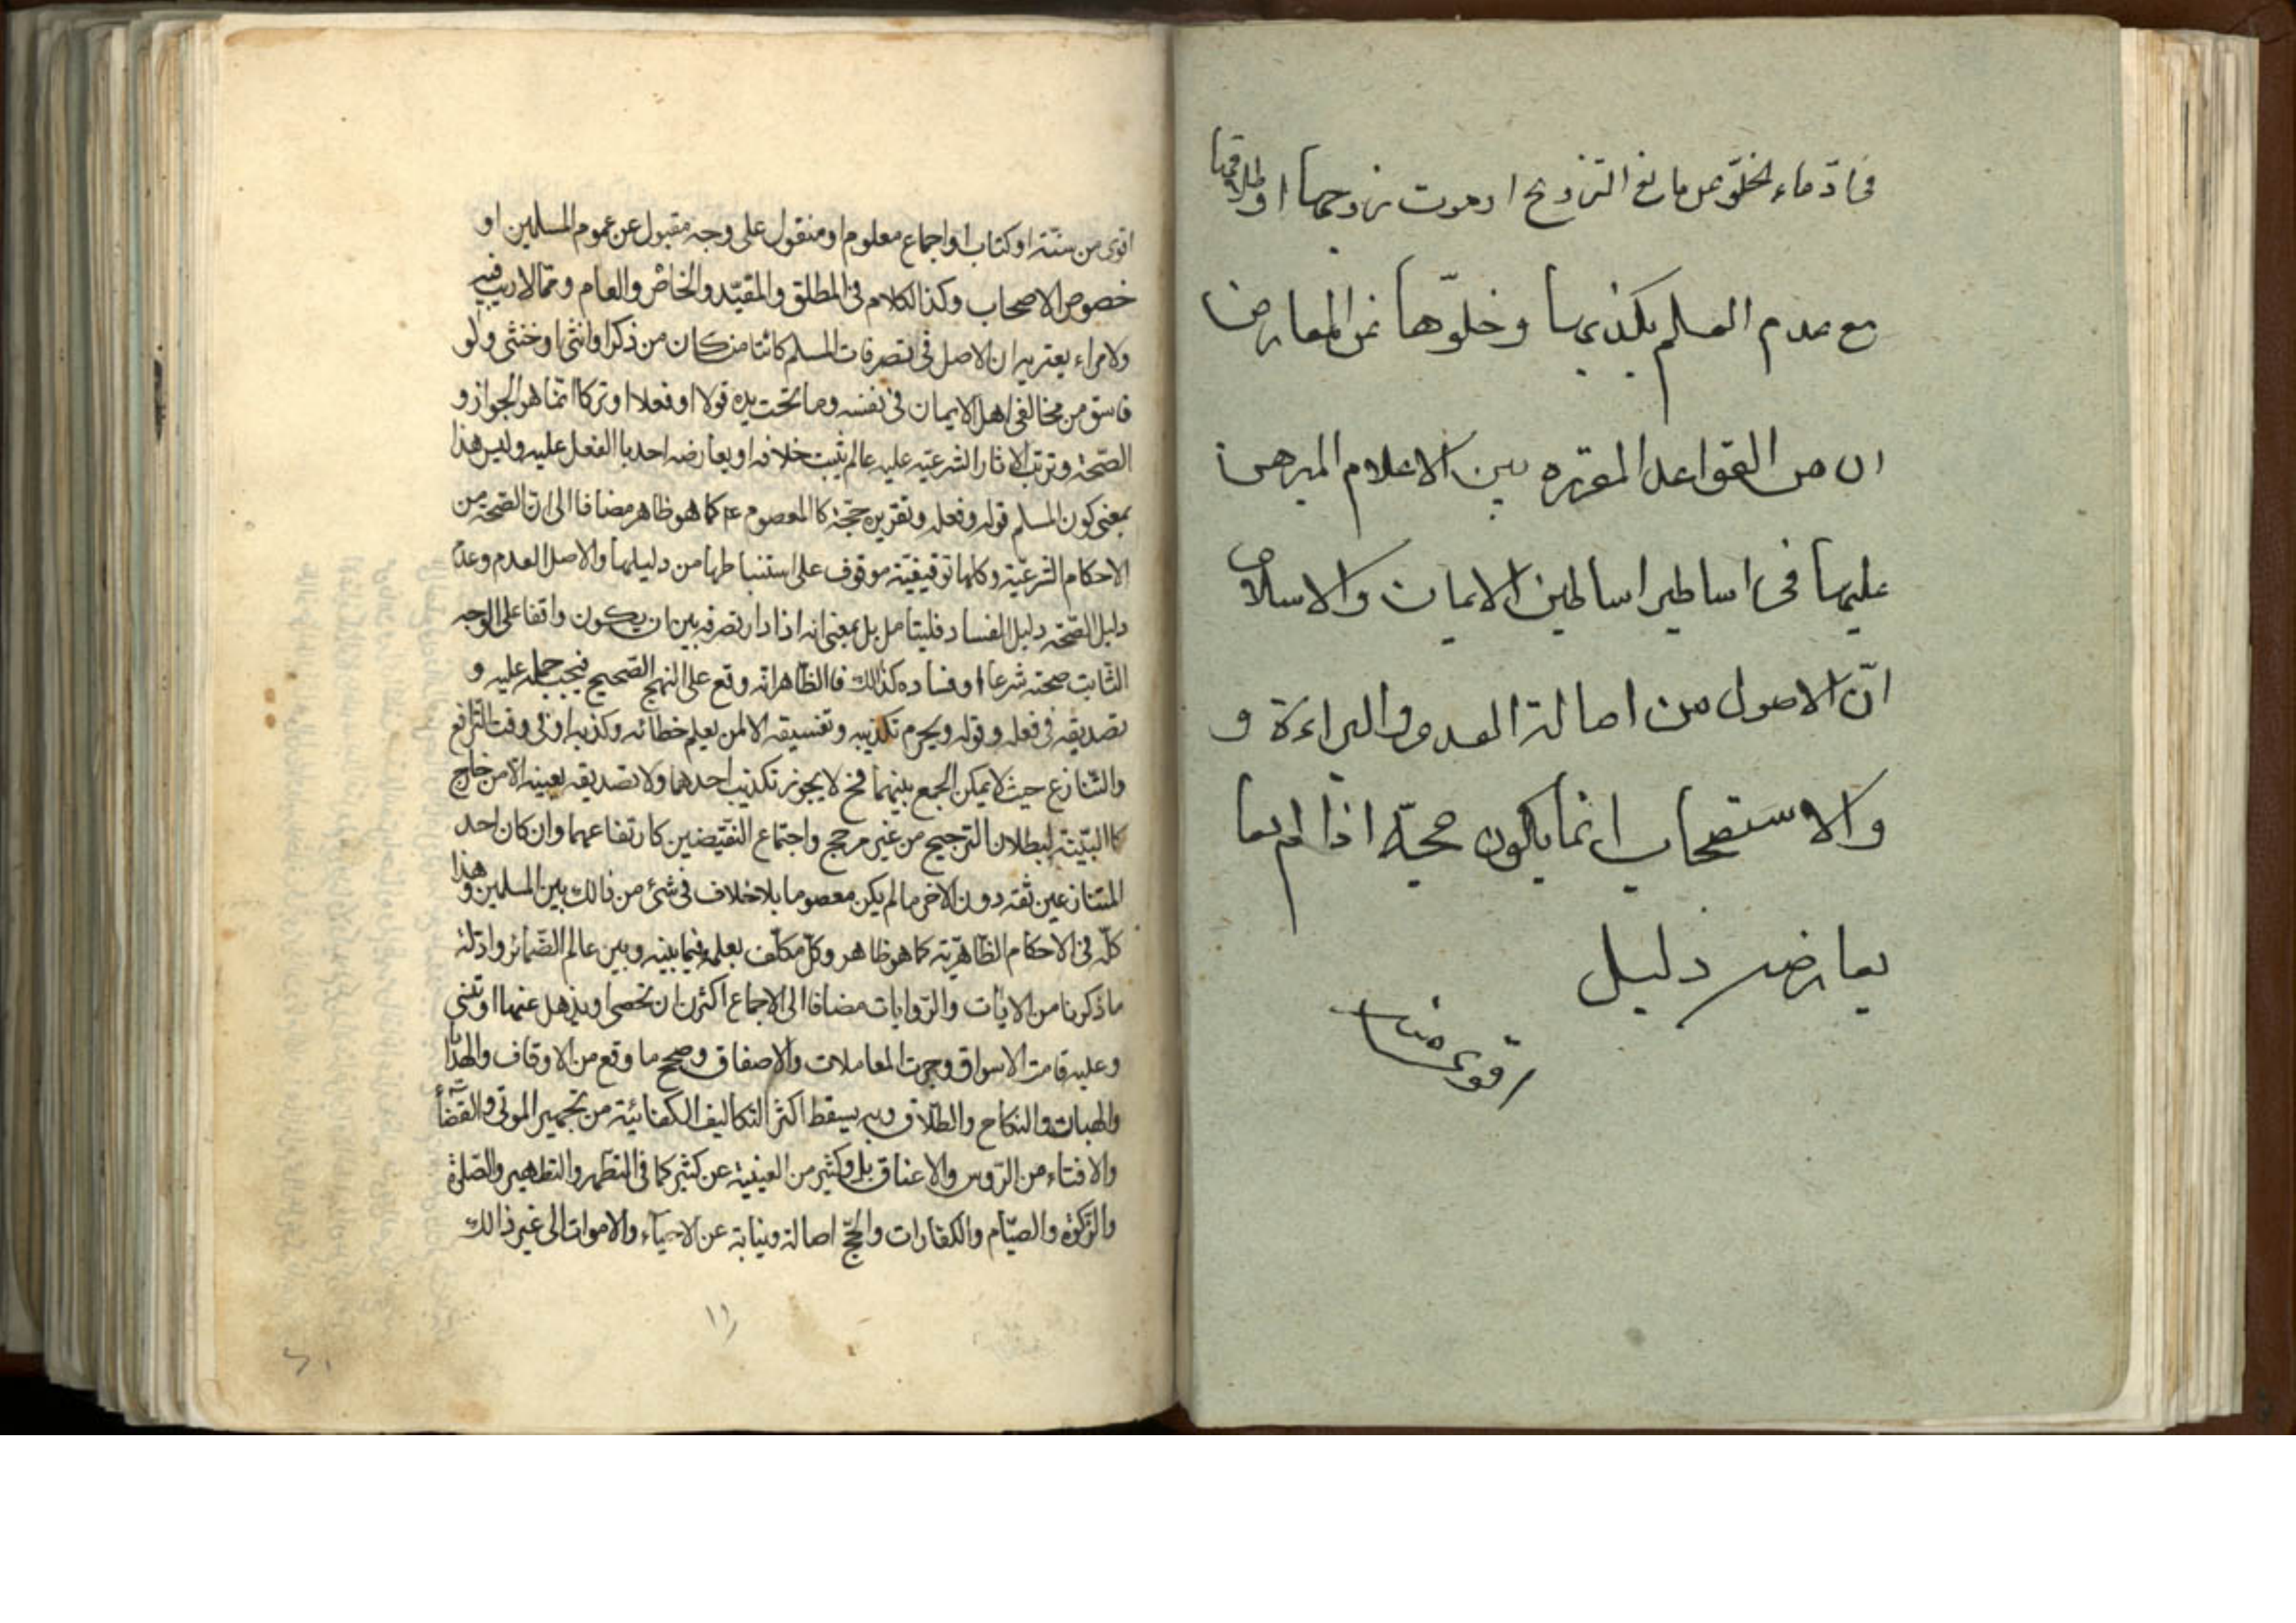 فی ادّعاء الخلوّ عن مانع التزویج او موت زوجها او طلاقها
مع عدم العلم بکذبها و خلوّها عن المعارض
ان من القواعد المقرره بین الاعلام المبرهن
علیها فی اساطیر اساطین الایمان والاسلام
انّ الاصول من اصالة العدم والبراءة و
والاستصحاب انما یکون حجیّة اذا لم یعا
یعارضه دلیل
اقوی منه
اقوی من سنّة او کتاب او اجماع معلوم او منقول علی وجه مقبول عن عموم المسلمین او
خصوص الاصحاب وکذا الکلام فی المطلق والمقیّد والخاصّ والعام وممّا لاریب فیه
ولامراء یعتریه ان الاصل فی تصرفات المسلم کائنا من کان من ذکر او انثی او خنثی ولو
فاسق من مخالفی اهل الایمان فی نفسه وما تحت یده قولا او فعلا او ترکا انّما هو الجواز و
الصّحة وترتب الاثار الشرعیّه علیه مالم یثبت خلافه او یعارضه احد بالفعل علیه ولیس هذا
بمعنی کون المسلم قوله وفعله وتقریره حجّیة کالمعصوم ع کما هو ظاهر مضافا الی انّ الصّحة من
الاحکام الشرعیّة وکلها توقیفیّة موقوف علی استنباطها من دلیلها والاصل العدم وعدم
دلیل الصّحّه دلیل الفساد فلیتامل بل بمعنی انه اذا دار تصرفه بین ان یکون واقعا علی الوجه
الثّابت صحته شرعا او فساده کذالک فالظّاهر انّه وقع علی النهج الصّحیح فیجب حمله علیه و
تصدیقه فی فعله وقوله ویحرم تکذیبه وتفسیقه الا لمن یعلم خطائه وکذبه او فی وقت التّرافع
والتّنازع حیث لایمکن الجمع بینهما فح لایجوز تکذیب احدهما ولا تصدیقه بعینه الّا من خارج
کالبیّنة لبطلان الترجیح من غیر مرجح واجتماع النقیضین کارتفاعهما وان کان احد
المتنازعین ثقه دون الاخر مالم یکن معصوما بلاخلاف فی شئ من ذالک بین المسلمین وهذا
کلّه فی الاحکام الظّاهریّه کما هو ظاهر وکلّ مکلّف بعلمه فیما بینه وبین عالم الضّمائر وادّلة
ما ذکرنا من الایات والرّوایات مضافا الی الاجماع اکثر ان تحصی او یذهل عنها او تنسی
وعلیه قامت الاسواق وجرت المعاملات والاصفاق وصح ما وقع من الاوقاف والهدایا
والهبات والنکاح والطّلاق وبه یسقط اکثر التکالیف الکفائیّة من تجهیز الموتی والقضاء
والافتاء من الرّوس والاعناق بل وکثیر من العینیة عن کثیر کما فی التطّهر والتطهیر والصّلوة
والزّکوة والصیّام والکفارات والحّج اصالة ونیابة عن الاحیآء والاموات الی غیر ذالک